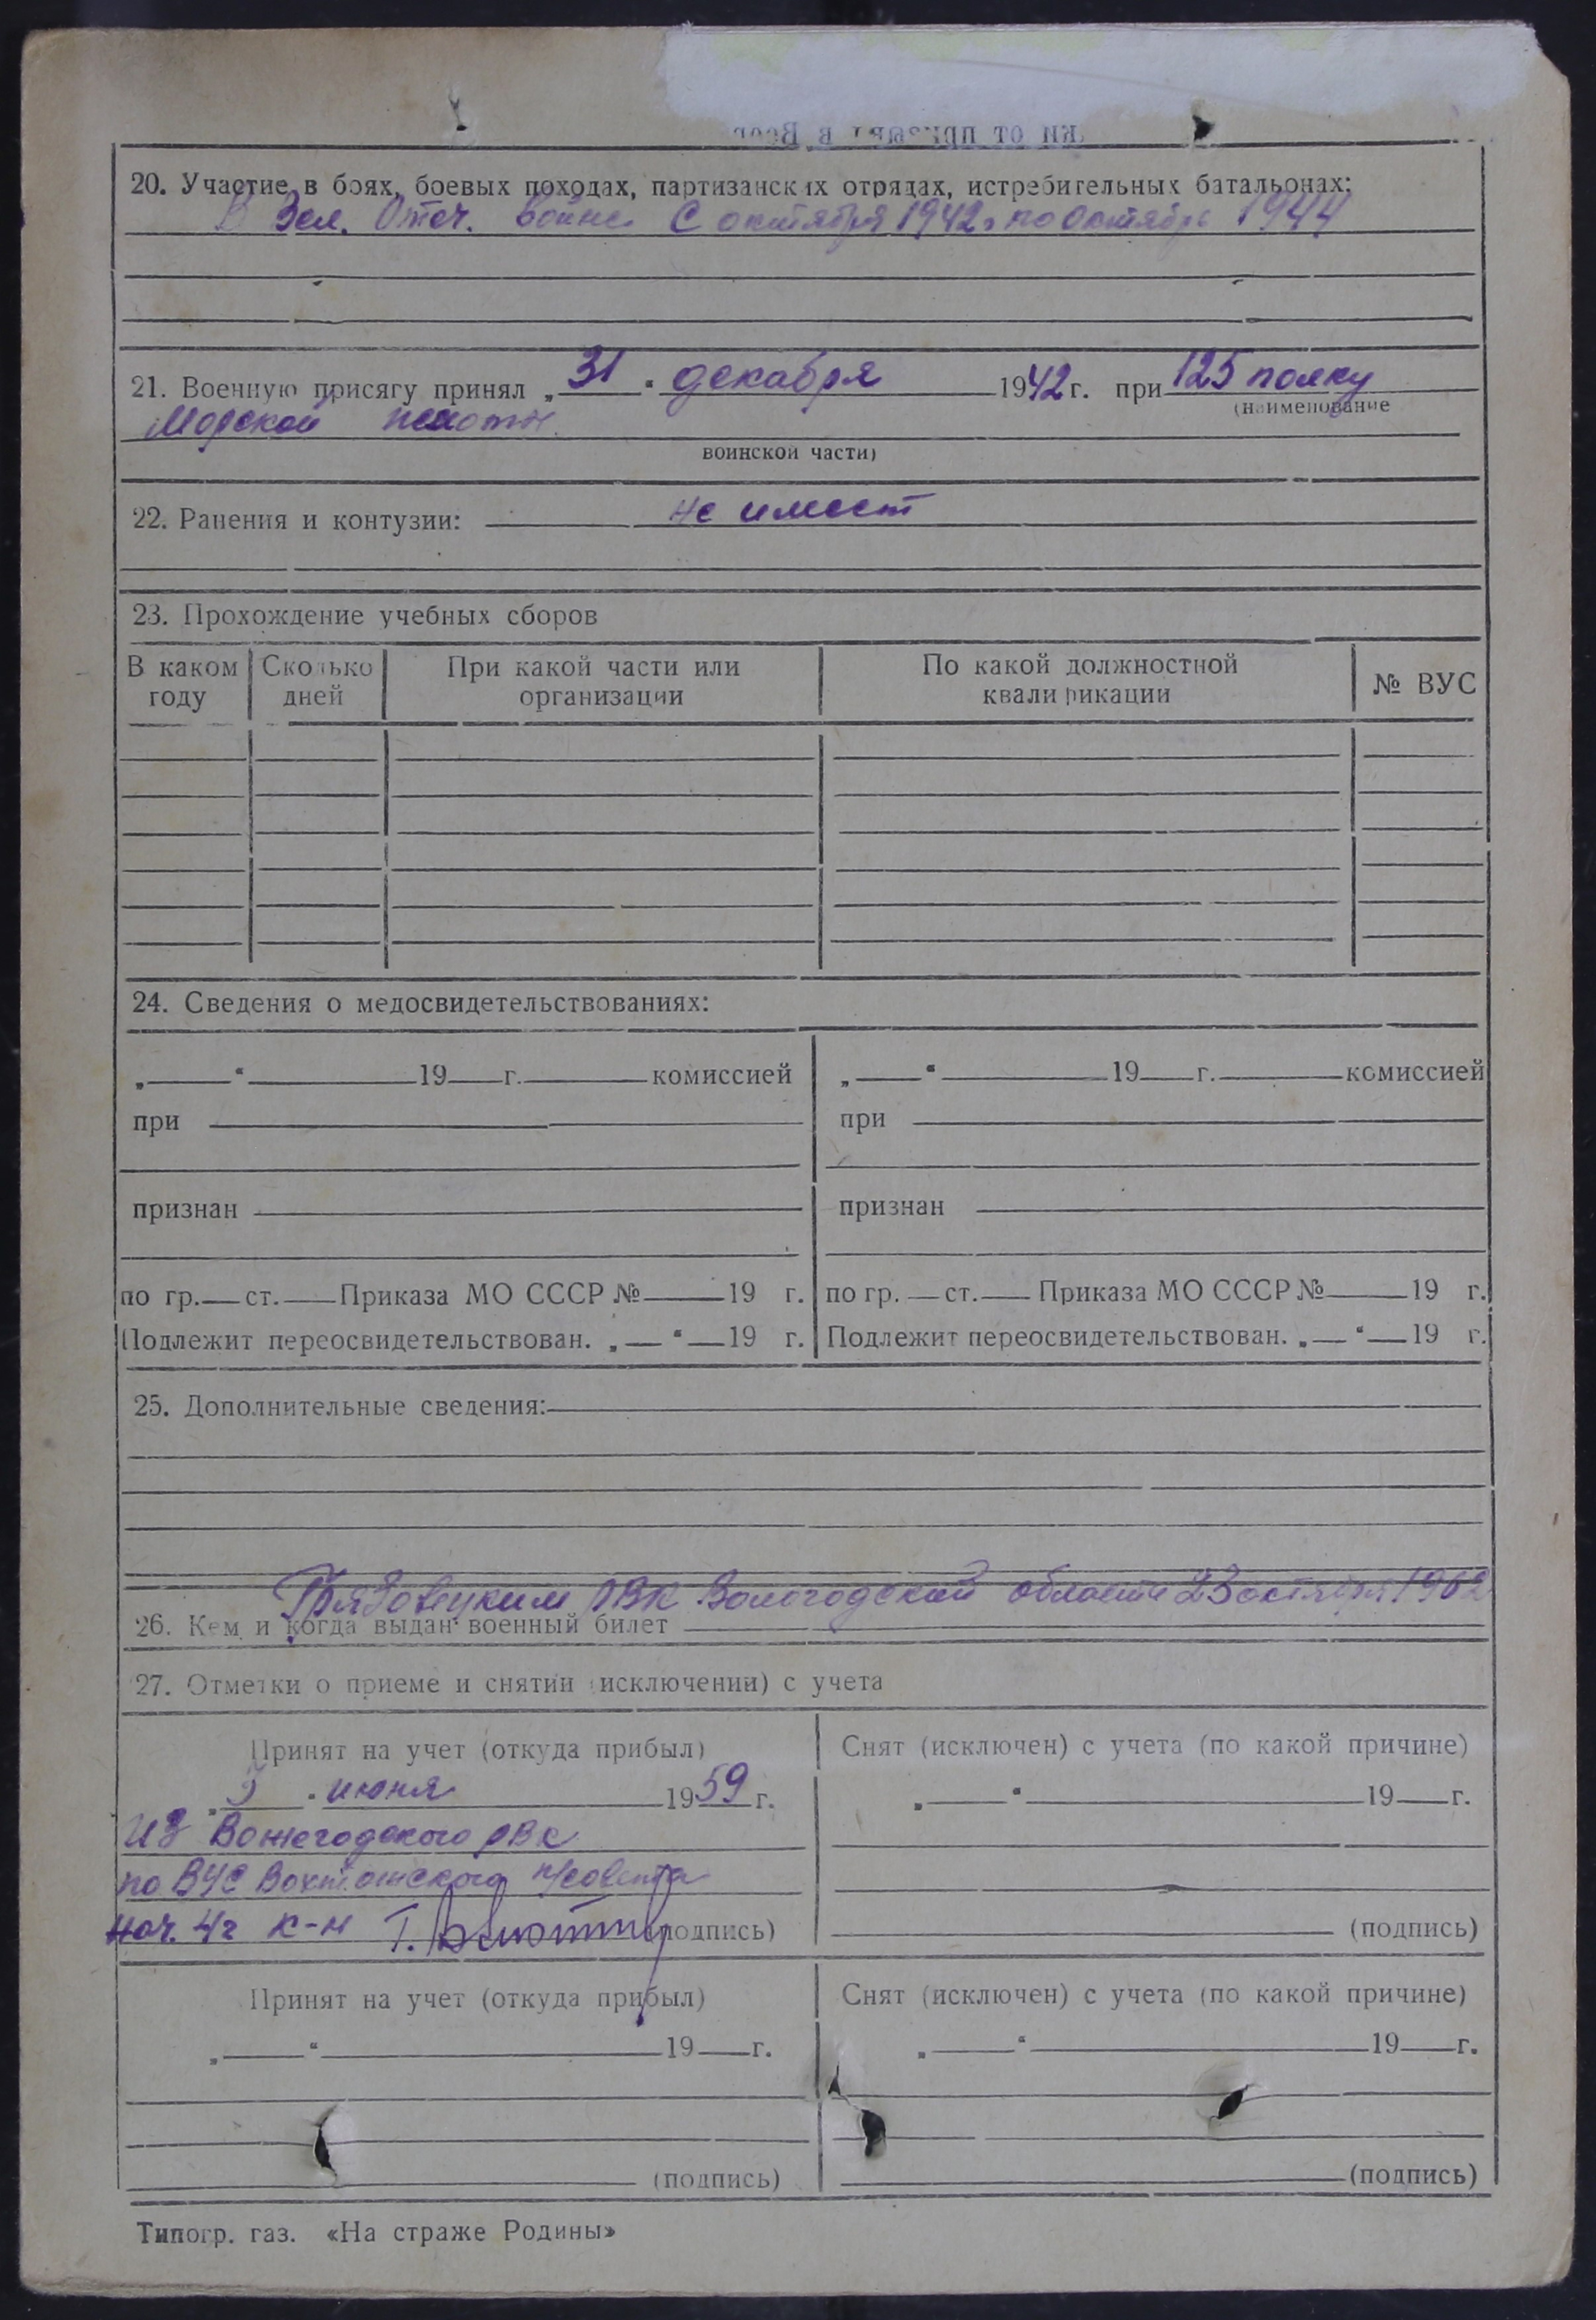 20. Участие в боях, боевых походах, партизанских отрядах, истребительных батальонах:
В Вел. Отеч. войне с октября 1942 г по октябрь 1944
21. Военную присягу принял „31“ декабря 1942 г. при 125 полку
(наименование
Морской пехоты.
воинской части)
22. Ранения и контузии: не имеет
23. Прохождение учебных сборов
В каком году Сколько дней При какой части или организации По какой должностной квалификации № ВУС
24. Сведения о медосвидетельствованиях:
„ “ 19 г. комиссией „ “ 19 г. комиссией
при при
признан признан
по гр. ст. Приказа МО СССР № 19 г. по гр. ст. Приказа МО СССР № 19 г.
Подлежит переосвидетельствован. „ “ 19 г. Подлежит переосвидетельствован. „ “ 19 г.
25. Дополнительные сведения:
Грязовецким РВК Вологодской области 23 октября 1962
26. Кем и когда выдан военный билет
27. Отметки о приеме и снятии (исключении) с учета
Принят на учет (откуда прибыл) Снят (исключен) с учета (по какой причине)
„5“ июня 1959 г. „ “ 19 г.
Из Вожегодского РВК
по ВУС Вохтожского п/совета
нач. 4 ч к-н Т. (подпись) (подпись)
Принят на учет (откуда прибыл) Снят (исключен) с учета (по какой причине)
„ “ 19 г. „ “ 19 г.
(подпись) (подпись)
Типогр. газ. «На страже Родины»